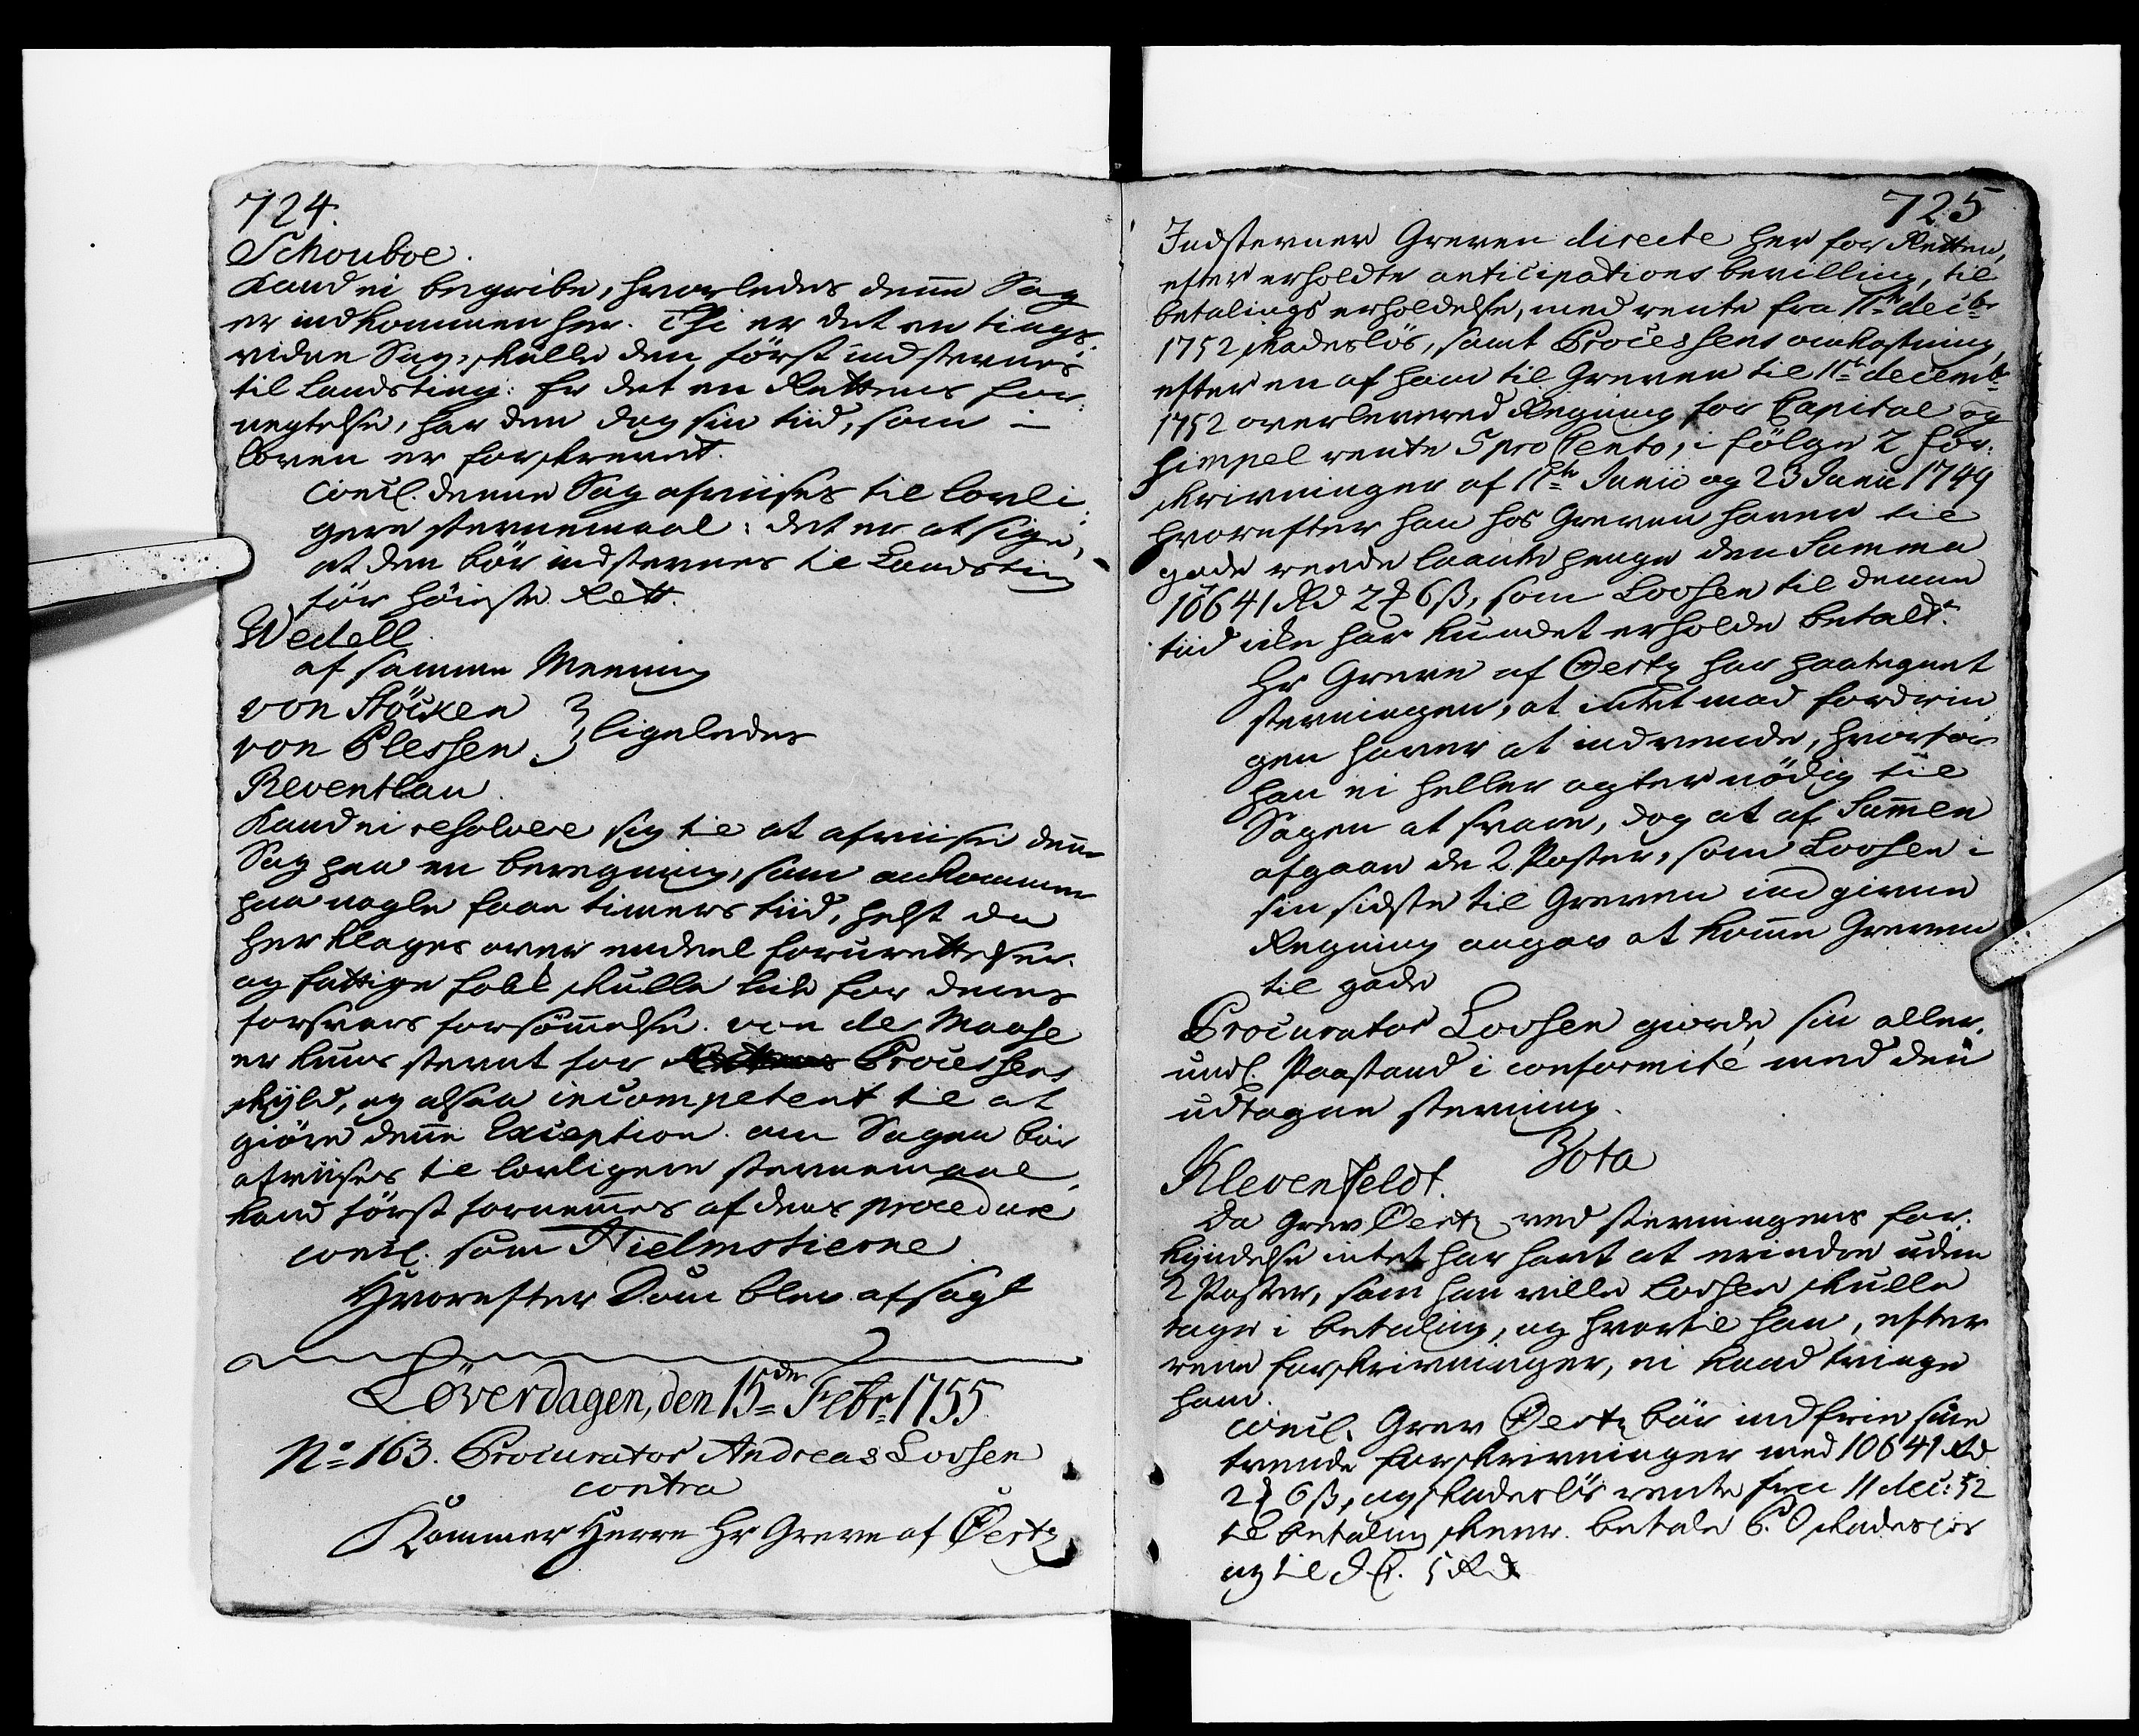 724.
Schouboe.
Kand ei begribe, hvorledes denne Sag
er indkommen her. Thi er det en tings
viden Sag, skulle den först indstevnes
til Landsting: Er det en Rettens for-
negtelse, har den dog sin tiid, som i
loven er forskrevet.
concl. denne Sag afviises til lovli-
gere stevnemaal: det er at sige,
at den bör indstevnes til Landsting
för höieste Rett.
Wedell
af samme Meening
von Stöcken
von Plessen } ligeledes
Reventlau.
Kand ei resolvere sig til at afviise denne
Sag paa en beregning, som ankommer
paa nogle faae timers tiid, helst da
her klages over endeel forurettelser.
og fattige folk skulle lide for deres
forsvars forsömmelse. von der Maase
er kuns stevnt for Processens
skyld, og altsaa incompetent til at
giöre denne Exception. om Sagen bör
afviises til lovligere stevnemaal,
kand först fornemmes af dens procedure
concl. som Hielmstierne
Hvorefter Dom blev afsagt
Löverdagen, den 15de Febr: 1755.
No 163. Procurator Andreas Loosen
contra
Kammer Herre Hr Greve af Oertz
725
Indstevner Greven directe her for Retten,
efter erholdte anticipations bevilling, til
betalings erholdelse, med rente fra 11te decbr
1752 skadeslös, samt Processens omkostning,
efter en af ham til Greven til 11te decembr
1752 overlevered Regning for Capital og
simpel rente 5 pro Cento, i fölge 2 for-
skrivninger af 11te Junii og 23 Junii 1749
hvorefter han hos Greven haver til
gode rende laante penge den Summa
10641 Rd 2 ₰ 6 ß, som Loosen til denne
tiid icke har kundet erholde betalt.
Hr Greve af Oertz har paategnet
stevningen, at intet mod fordrin
gen haver at indvende, hvorfor
han ei heller agter nödig til
Sagen at svare, dog at af Summen
afgaar de 2 Poster, som Loosen i
sin sidste til Greven indgivne
Regning angav at komme Greven
til gode
Procurator Loosen giorde sin aller-
undl. Paastand i conformité med den
udtagne stevning.
Vota
Klevenfeldt.
Da Grev Oertz ved stevningens for-
kyndelse intet har havt at erindre uden
2 Poster, som han ville Loosen skulle
tage i betaling, og hvortil han, efter
rene forskrivninger, ei kand tvinge
ham.
concl. Grev Oertz bör indfrie sine
tvende forskrivninger med 10641 Rd
2 ₰ 6 ß, og skadeslös rente fra 11 dec: 52
til betaling skeer. betale P.O skadeslös
og til J.C. 5 Rd